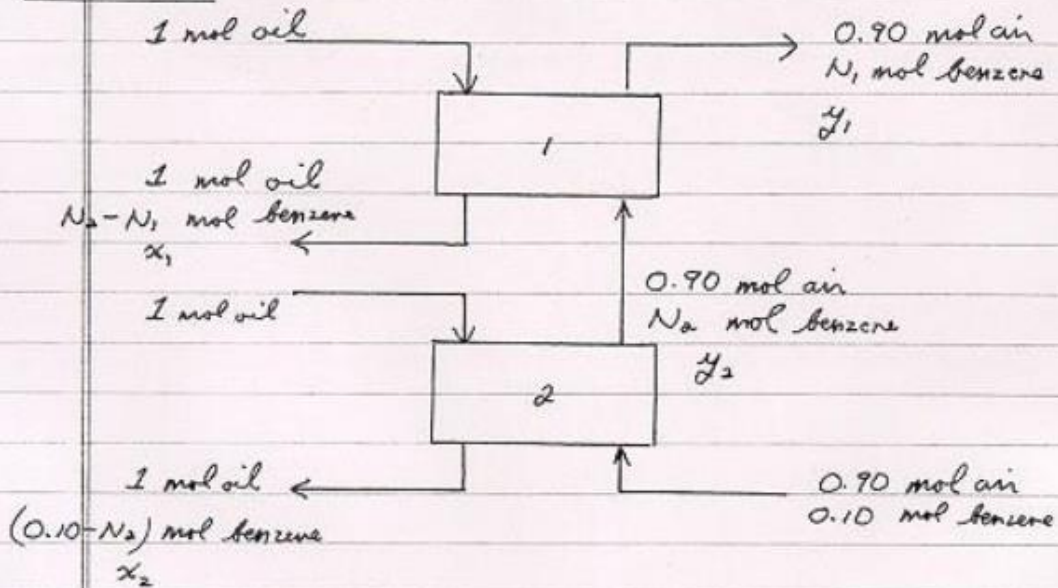 1 mol oil
0.90 mol air
N₁ mol benzene
y₁
1
1 mol oil
N₂-N₁ mol benzene
x₁
1 mol oil
0.90 mol air
N₂ mol benzene
y₂
2
1 mol oil
(0.10-N₂) mol benzene
x₂
0.90 mol air
0.10 mol benzene